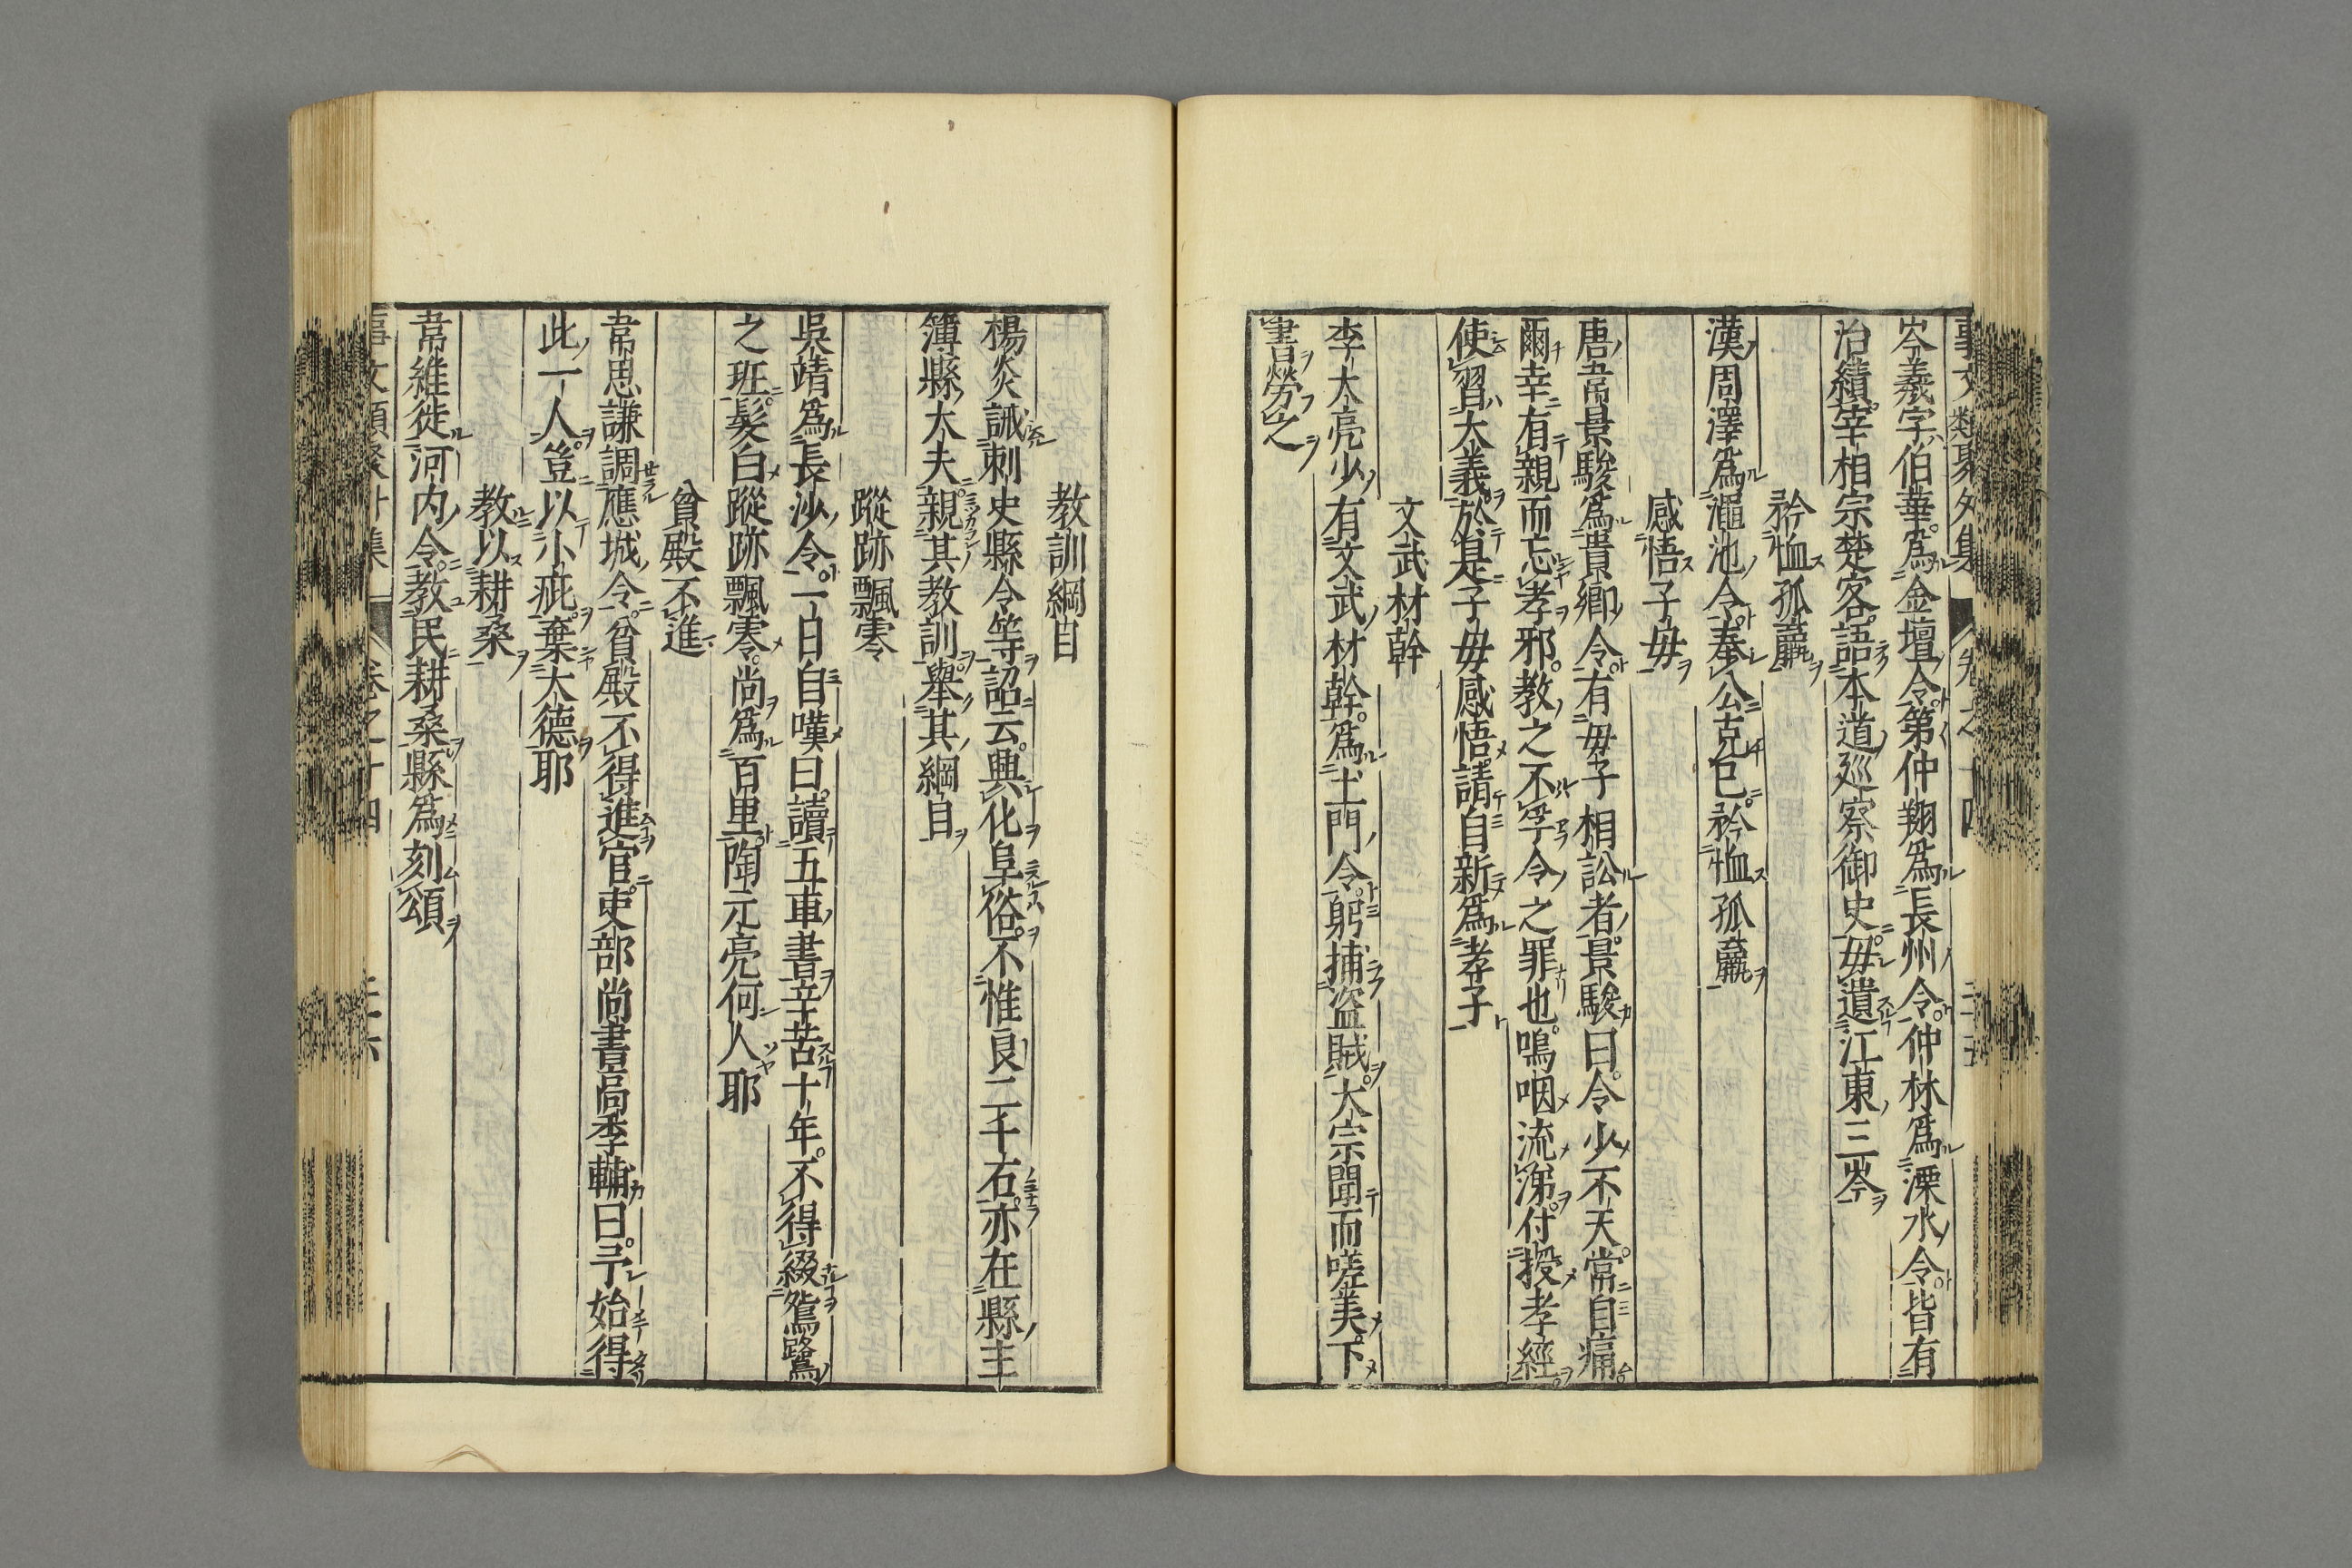 事文類聚外集 卷之十四
岑羲字伯華。爲金壇令。第仲翔爲長州令。仲林爲溧水令。皆有
治績。宰相宗楚客。語本道廵察御史。毋遺江東三岑
矜恤孤羸
漢周澤爲澠池令。奉公克已。矜恤孤羸
感悟子毋
唐韋景駿爲貴鄉令。有毋子相訟者。景駿曰。令少不天。常自痛
爾幸有親而忘孝邪。教之不孚令之罪也。嗚咽流涕。付授孝經
使習大義。於是子毋感悟。請自新爲孝子
文武材幹
李大亮少有文武材幹。爲土門令。躬捕盜賊。太宗聞而嗟美。下
書勞之
教訓綱目
楊炎誡刺史縣令等詔云。興化阜俗。不惟良二千石。亦在縣主
簿縣大夫。親其教訓。舉其綱目
蹤跡飄零
吳靖爲長沙令。一日自嘆曰。讀五車書。辛苦十年。不得綴鴛鷺
之班。髮白蹤跡飄零。尚爲百里。陶元亮何人耶
貧殿不進
韋思謙調應城令。貧殿不得進官。吏部尚書高季輔曰。予始得
此一人。豈以小疵。棄大德耶
教以耕桑
韋維徙河内令。教民耕桑。縣爲刻頌